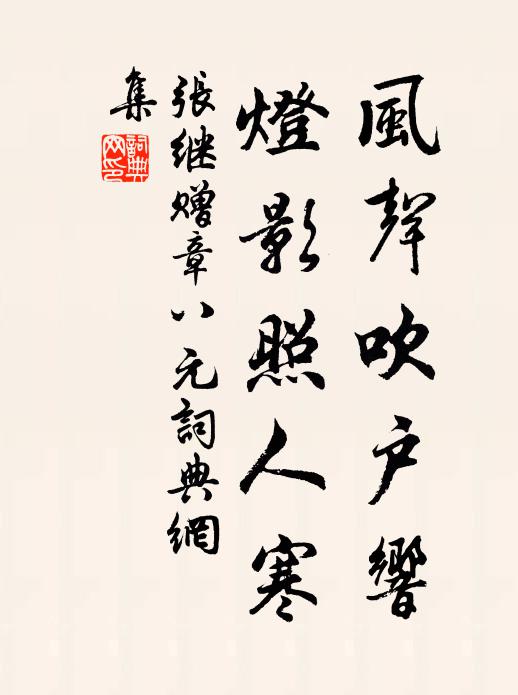 風聲吹戶響
燈影照人寒
張继赠章八元詞典網
集
詞典网印